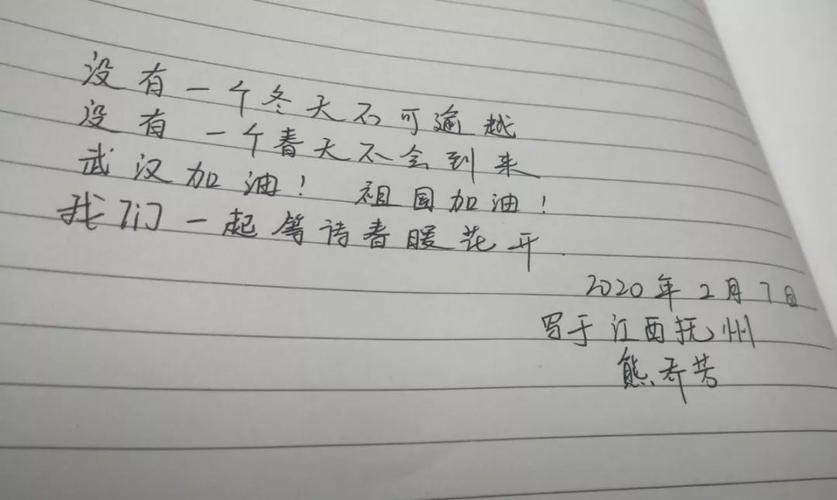 没有一个冬天不可逾越
没有一个春天不会到来
武汉加油！祖国加油！
我们一起等待春暖花开.
2020年2月7日
写于江西抚州
熊乔芳